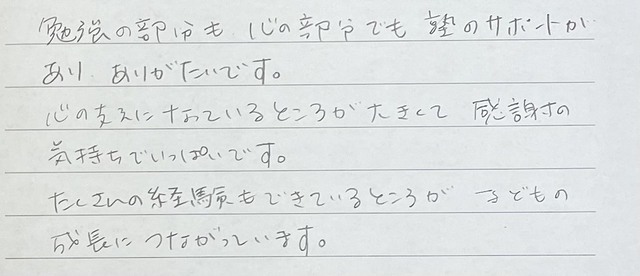 勉強の部分も 心の部分でも 塾のサポートが
あり ありがたいです。
心の支えになっているところが大きくて 感謝の
気持ちでいっぱいです。
たくさんの経験もできているところが 子どもの
成長につながっています。